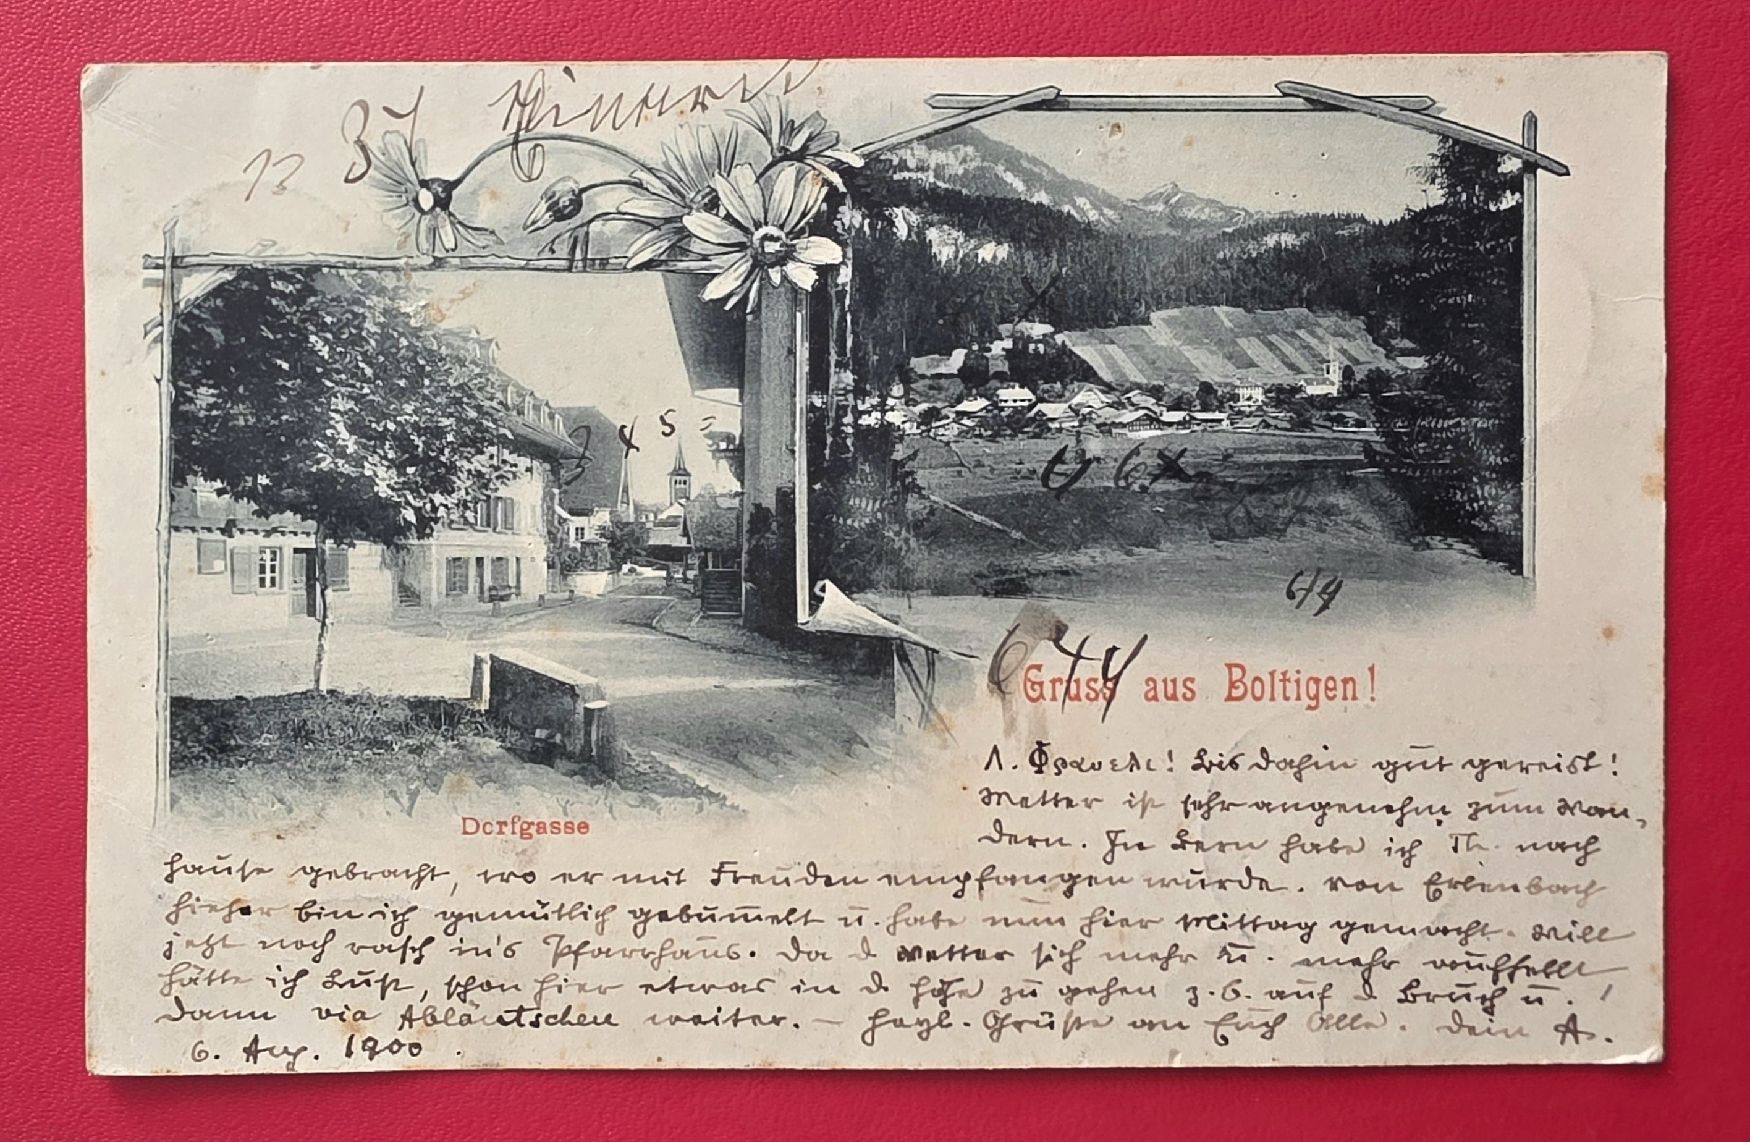 13 37
3 4 5 =
644
644
Gruss aus Boltigen!
Dorfgasse
Λ. Φραυελι! Bis dahin gut gereist!
Wetter ist sehr angenehm zum Wan-
dern. In Bern habe ich Th. nach
Hause gebracht, wo er mit Freuden empfangen wurde. Von Erlenbach
hieher bin ich gemütlich gebummelt u. habe nun hier Mittag gemacht. Will
jetzt noch rasch in's Pfarrhaus. Da d Wetter sich mehr u. mehr aufhellt
hätte ich Lust, schon hier etwas in d. Höhe zu gehen z. B. auf d Bruch u.
dann via Abläntschen weiter. – Herzl. Grüsse an Euch Alle. Dein A.
6. Aug. 1900.